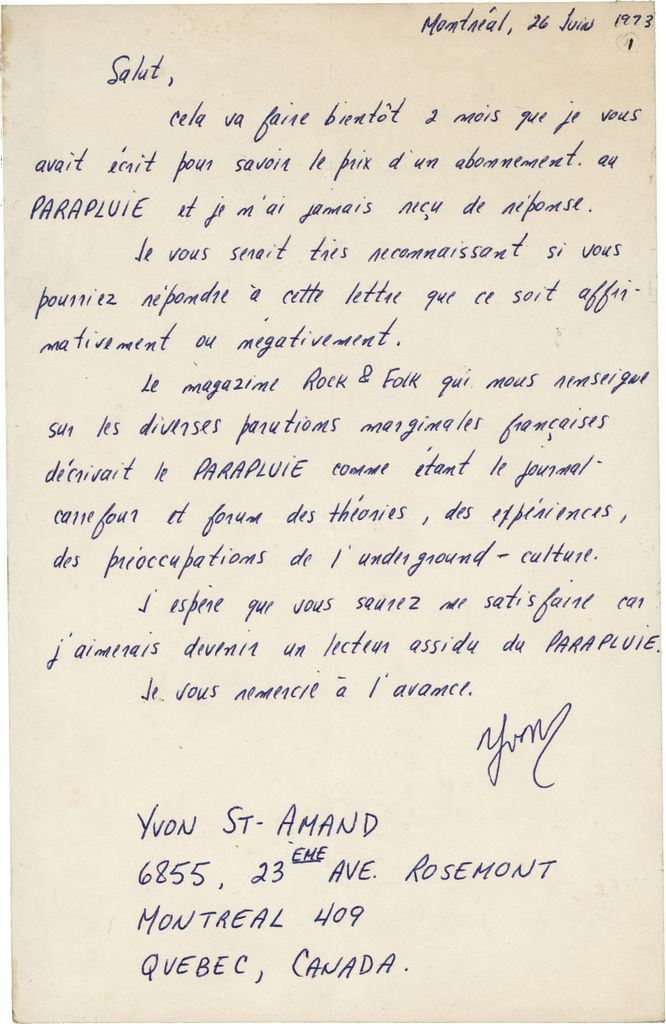 Montréal, 26 Juin 1973
1
Salut,
cela va faire bientôt 2 mois que je vous
avait écrit pour savoir le prix d'un abonnement. au
PARAPLUIE et je n'ai jamais reçu de réponse.
Je vous serait très reconnaissant si vous
pourriez répondre à cette lettre que ce soit affir-
mativement ou négativement.
Le magazine Rock & Folk qui nous renseigne
sur les diverses parutions marginales françaises
décrivait le PARAPLUIE comme étant le journal-
carrefour et forum des théories, des expériences,
des préoccupations de l'underground-culture.
J'espère que vous saurez me satisfaire car
j'aimerais devenir un lecteur assidu du PARAPLUIE.
Je vous remercie à l'avance.
Yvon
YVON ST-AMAND
6855, 23EME AVE. ROSEMONT
MONTREAL 409
QUEBEC, CANADA.